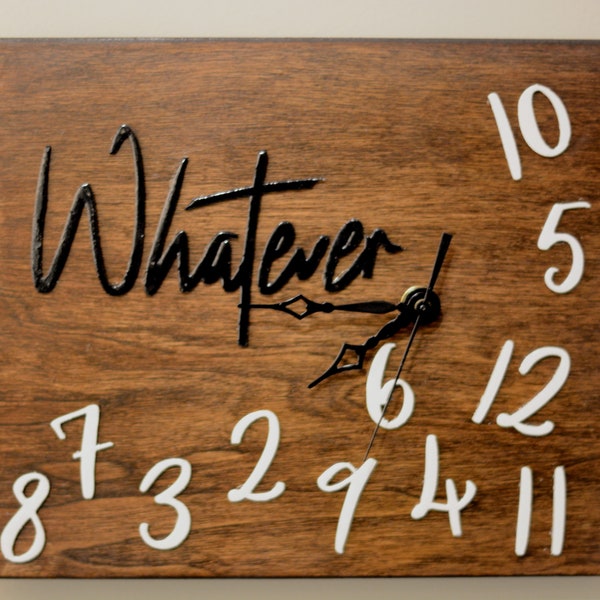 10
Whatever
5
6
12
7
2
8
3
9
4
11